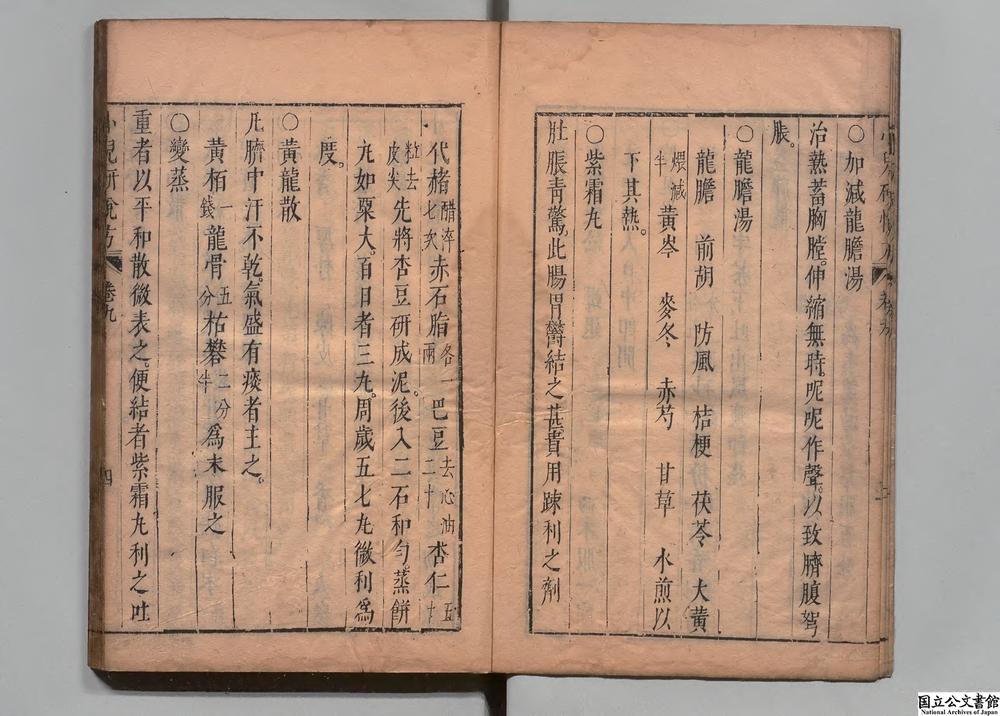 〇加減龍膽湯
治熱蓄胸膛。伸縮無時。呢呢作聲。以致臍腹弩
脹。
〇龍膽湯
龍膽 前胡 防風 桔梗 茯苓 大黃
煨減半 黃岑 麥冬 赤芍 甘草 水煎以
下其熱。
〇紫霜丸
肚脹青驚。此腸胃鬱結之甚。責用踈利之劑
代赭醋淬七次 赤石脂各一兩 巴豆去心油二十 杏仁五十
粒去皮尖 先將杏豆研成泥。後入二石和勻蒸餅
丸如粟大。百日者三丸。周歲五七丸微利爲
度。
〇黃龍散
凡臍中汗不乾。氣盛有痰者主之。
黃栢一錢 龍骨五分 枯礬二分半 爲末服之
〇變蒸
重者以平和散微表之。便結者紫霜丸利之吐
小兒研悅方 卷九 四
國立公文書館
National Archives of Japan